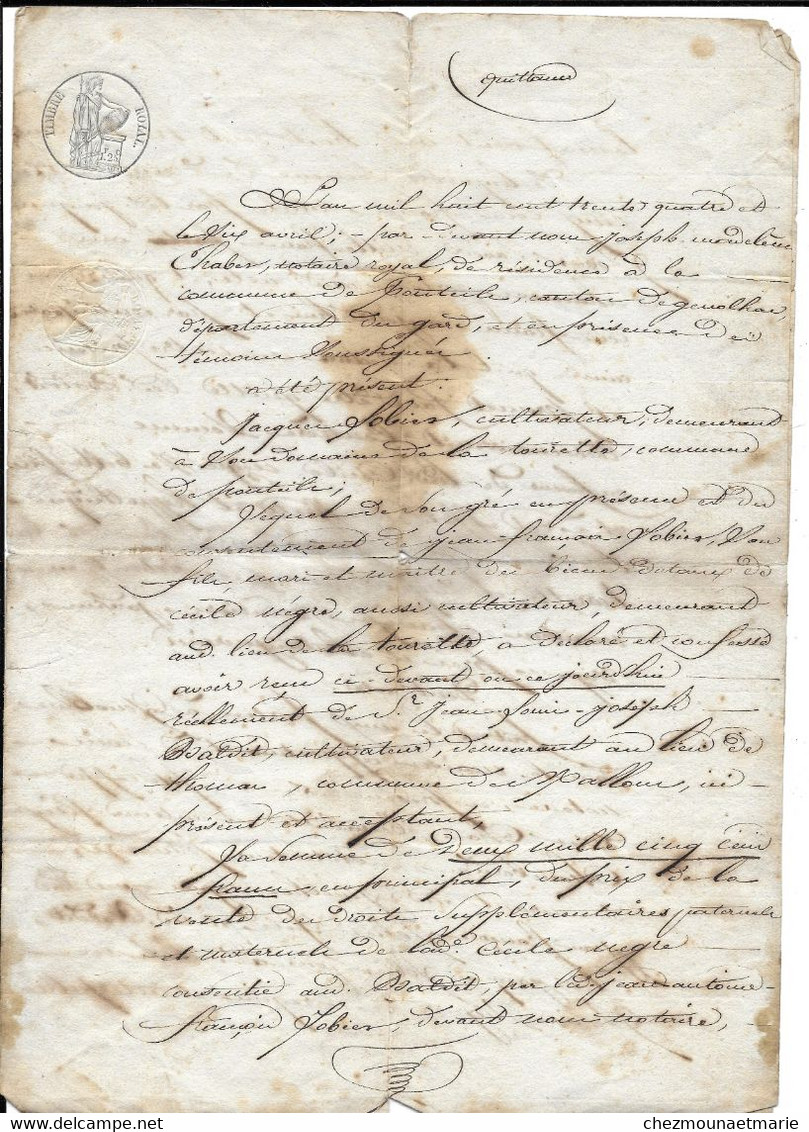 quittance
TIMBRE ROYAL
1.25
L'an mil huit cent trente quatre et
le dix avril; par devant nous joseph
Chaber, notaire royal, de résidence à la
commune de Ponteils, canton de genolhac,
département du gard, et en présence des
témoins soussignés.
a été présent:
jacques Sobier, cultivateur, demeurant
à son domaine de la tourette, commune
de ponteils;
Lequel de son gré en présence et du
consentement de jean françois Sobier, son
fils, mari et maître des biens dotaux de
cécile nègre, aussi cultivateur, demeurant
aud. lieu de la tourette, a déclaré et confessé
avoir reçu ci-devant ou ce jourd'hui
réellement de Sr. jean-Louis-joseph
Baldit, cultivateur, demeurant au lieu de
thomas, commune de, ici
présent et acceptant,
La somme de deux mille cinq cens
francs, en principal, du prix de la
vente des droits supplémentaires paternels
et maternels de lad.e Cécile negre
consentie aud. Baldit, par led. jean-antoine-
françois Sobier, devant nous notaire,
chezmounaetmarie